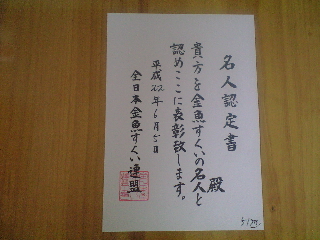 名人認定書
殿
貴方を金魚すくいの名人と
認めここに表彰致します。
平成22年6月5日
全日本金魚すくい連盟